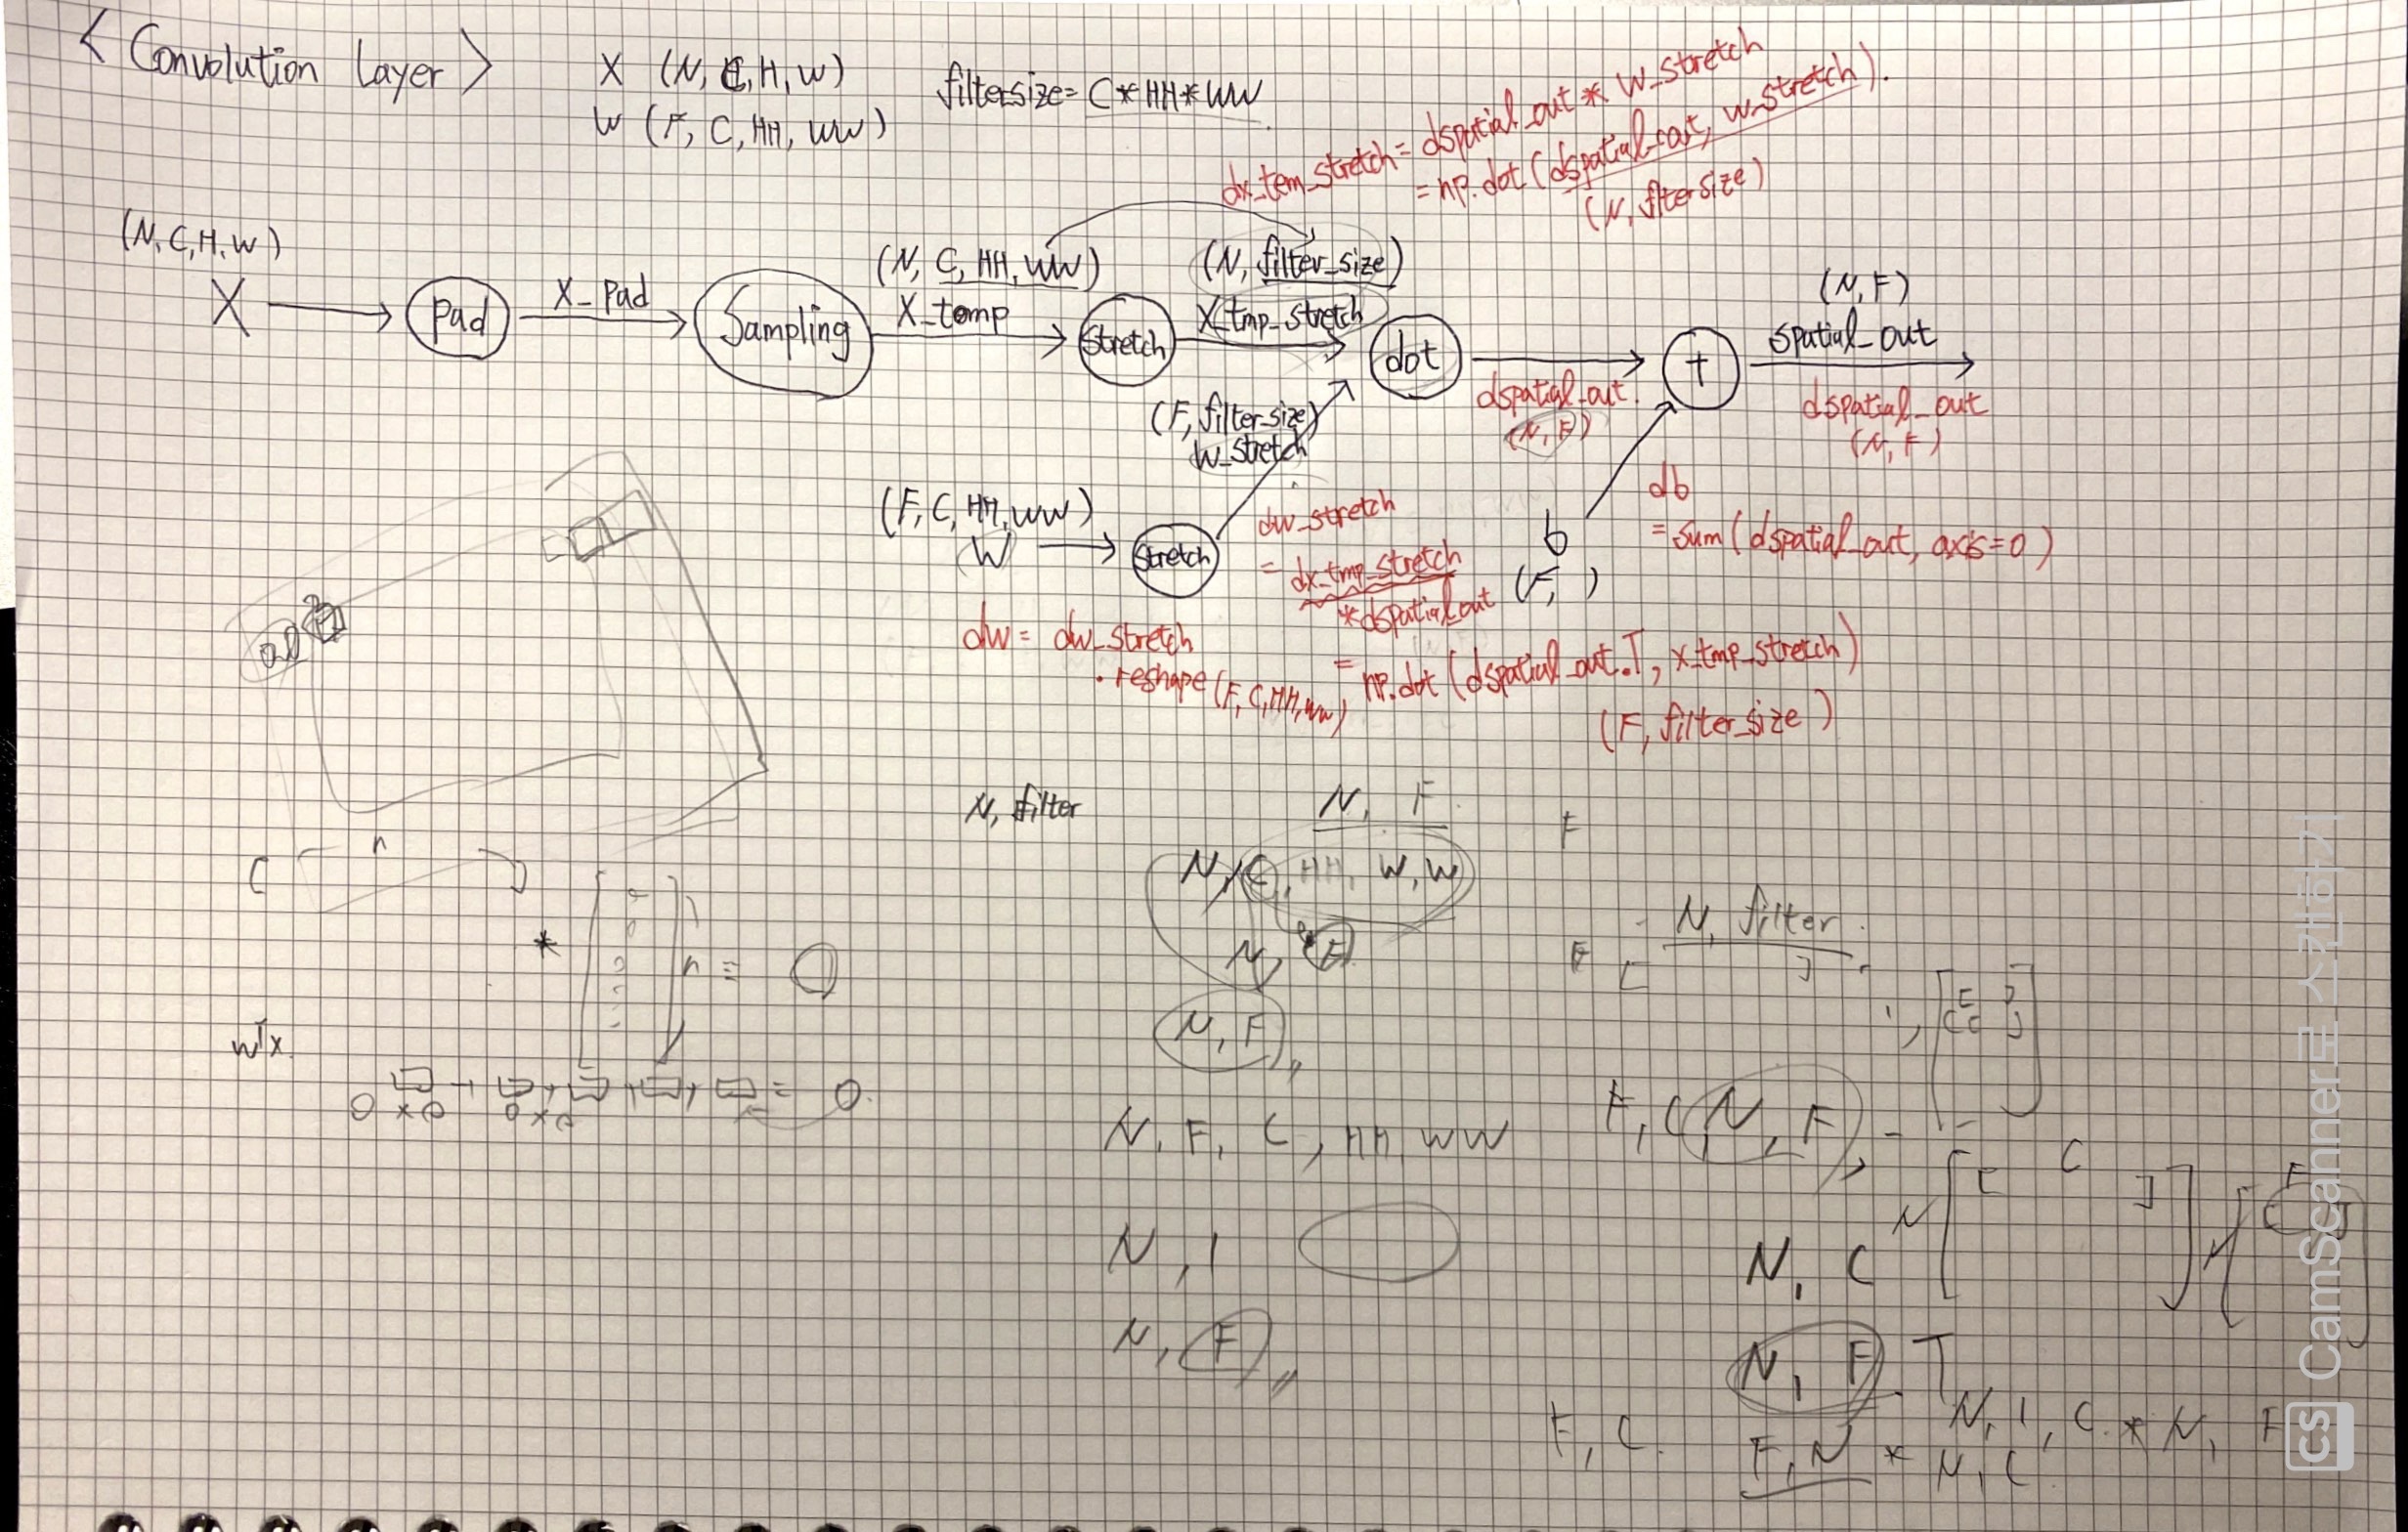 < Convolution Layer >
X (N, C, H, W)
W (F, C, HH, WW)
filtersize = C*HH*WW
dx_tem_stretch = dspatial_out * W_stretch
= np.dot(dspatial_out, w_stretch).
(N, fltersize)
(N, C, H, W)
X
Pad
X_Pad
Sampling
(N, C, HH, WW)
X_temp
Stretch
(N, filter_size)
X_tmp_stretch
dot
dspatial_out.
(N, F)
+
(N, F)
spatial_out
dspatial_out
(N, F)
(F, filter_size)
W_stretch
(F, C, HH, WW)
W
Stretch
dw_stretch
= dx_tmp_stretch
*dspatial_out
= np.dot(dspatial_out.T, x_tmp_stretch)
(F, filter_size)
b
(F, )
db
= sum(dspatial_out, axis=0)
dw = dw_stretch
.reshape(F, C, HH, WW)
N, filter
N, F
N, C, HH, W, W
N, F
N, F
N, F, C, HH, WW
N, 1
N, F
F
N, filter
F
n
*
n =
wTx.
N, F
C
N
F
N, C
N, F T
N, 1, C * N, F
F, C.
F, N * N, C
CS CamScanner로 스캔하기